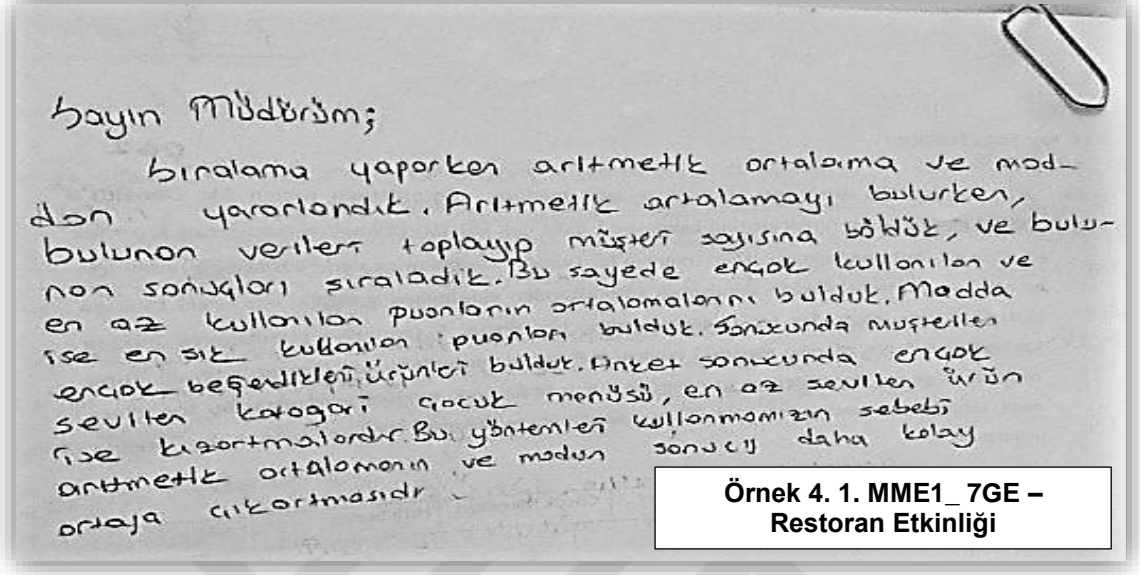 Sayın Müdürüm;
Sıralama yaparken aritmetik ortalama ve mod-
dan yararlandık. Aritmetik artalamayı bulurken,
bulunan verileri toplayıp müşteri sayısına böldük, ve bulu-
nan sonuçları sıraladık. Bu sayede ençok kullanılan ve
en az kullanılan puanların ortalamalarını bulduk. Modda
ise en sık kullanılan puanları bulduk. Sonucunda müşterilen
ençok beğendikleri, ürünleri bulduk. Anket sonucunda ençok
sevilen katogari çocuk menüsü, en az sevilen ürün
ise kızartmalardır. Bu yöntemleri kullanmamızın sebebi
aritmetik ortalamanın ve modun sonucu daha kolay
ortaya çıkartmasıdır
Örnek 4. 1. MME1_ 7GE –
Restoran Etkinliği